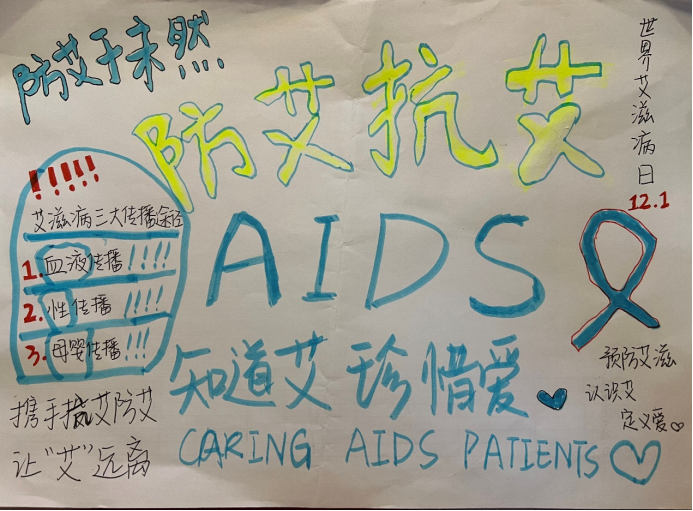 防艾于未然
防艾抗艾
世界艾滋病日
12.1
!!!!!
艾滋病三大传播途径
1.血液传播!!!!
2.性传播!!!!
3.母婴传播!!!
AIDS
知道艾 珍惜爱
CARING AIDS PATIENTS
携手抗艾防艾
让“艾”远离
预防艾滋
认识艾
定义爱